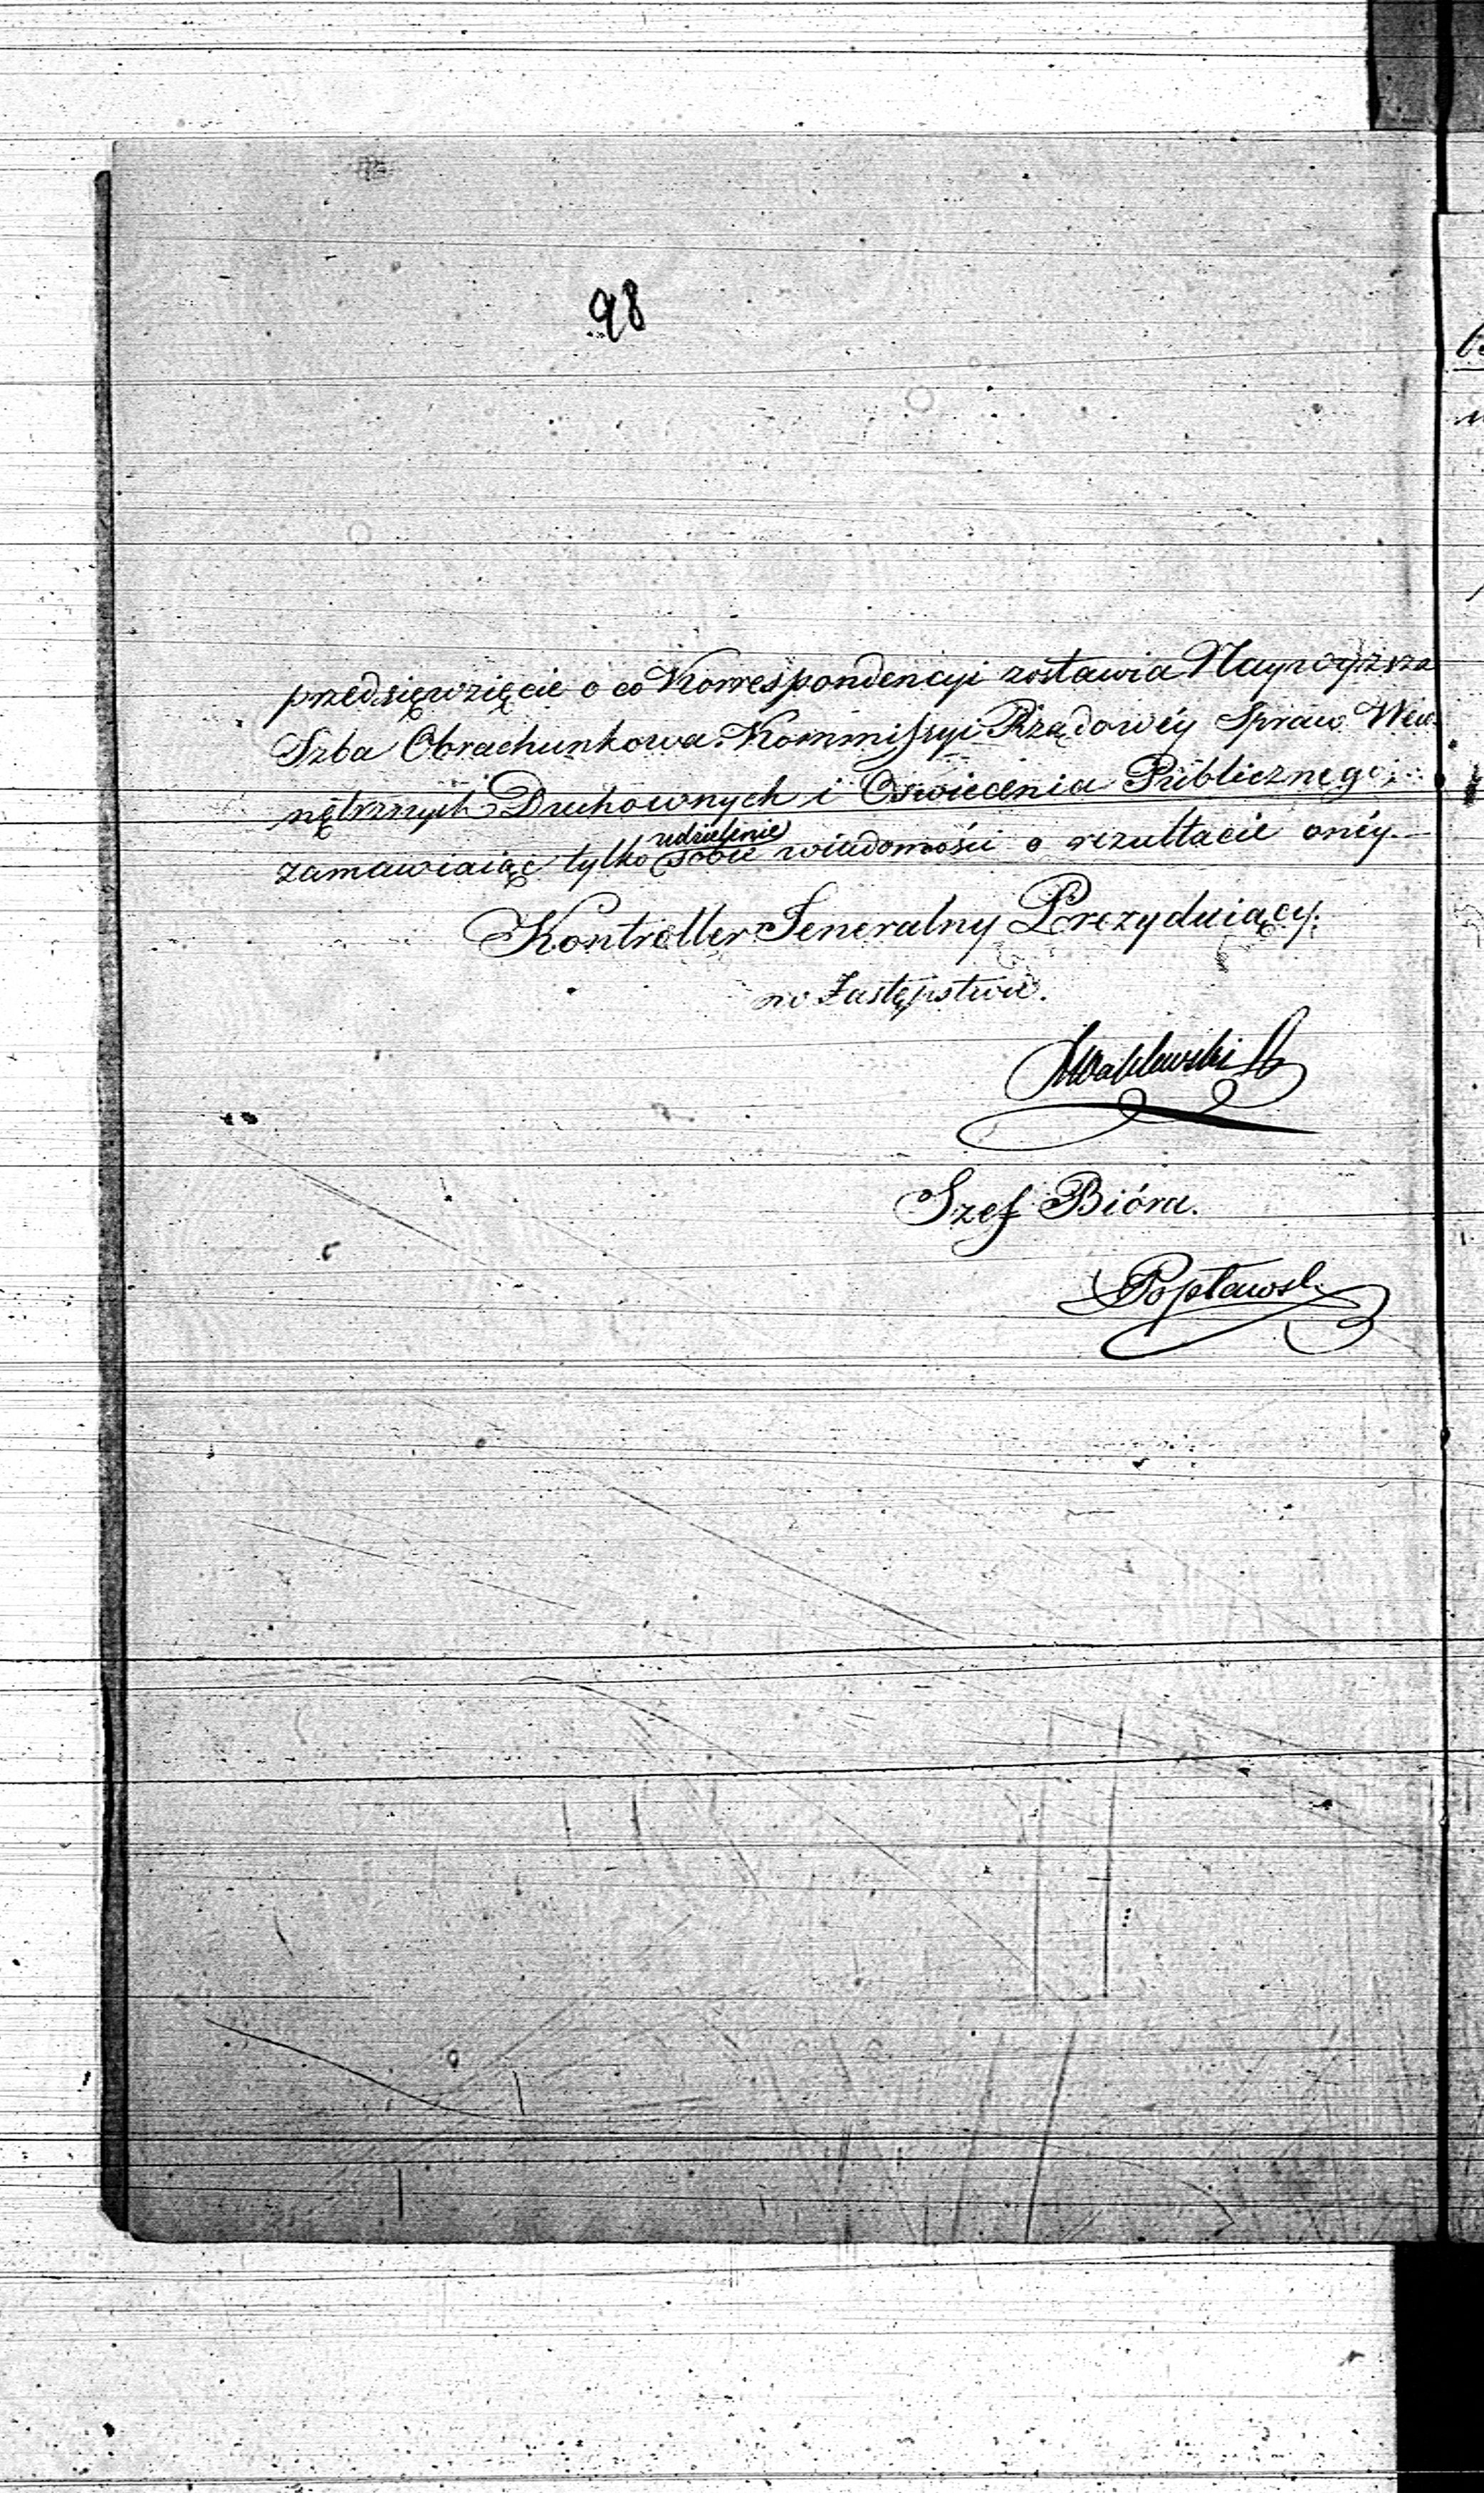 98
przedsięwzięcie o co Korrespondencyi zostawia Naywyższa
Izba Obrachunkowa. Kommissyi Rządowéy Spraw Wew-
nętrznych Duchownych i Oswiecenia Publicznego;
udzielenie
zamawiaiąc tylko sobie wiadomości o rezultacie onéy.—
Kontroller Jeneralny Prezyduiący.
w Zastępstwie.
Szef Bióra.
Popławsk